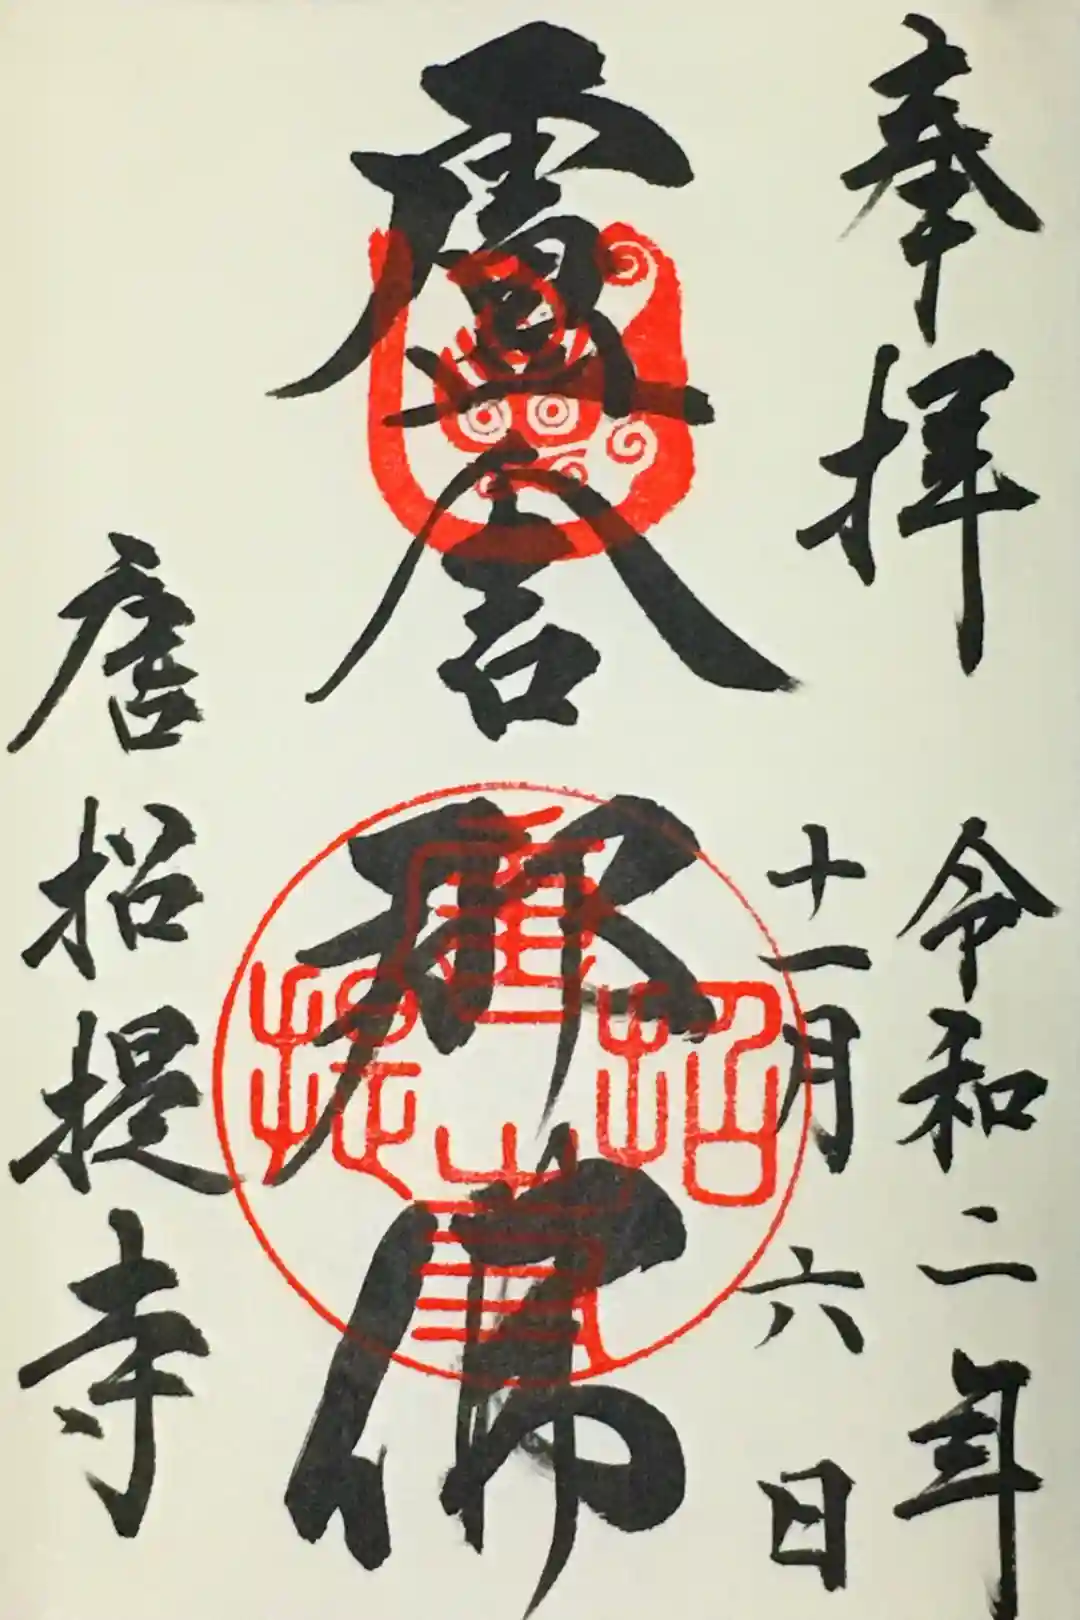 奉拝
令和二年
十一月六日
盧舎那佛
唐招提寺
唐招提